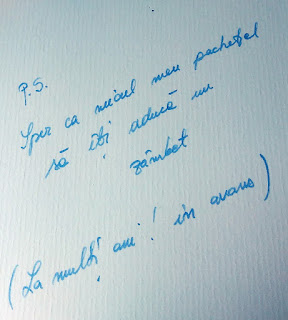 P.S.
Sper ca micul meu pachețel
să îți aducă un
zâmbet
(La mulți ani! în avans)